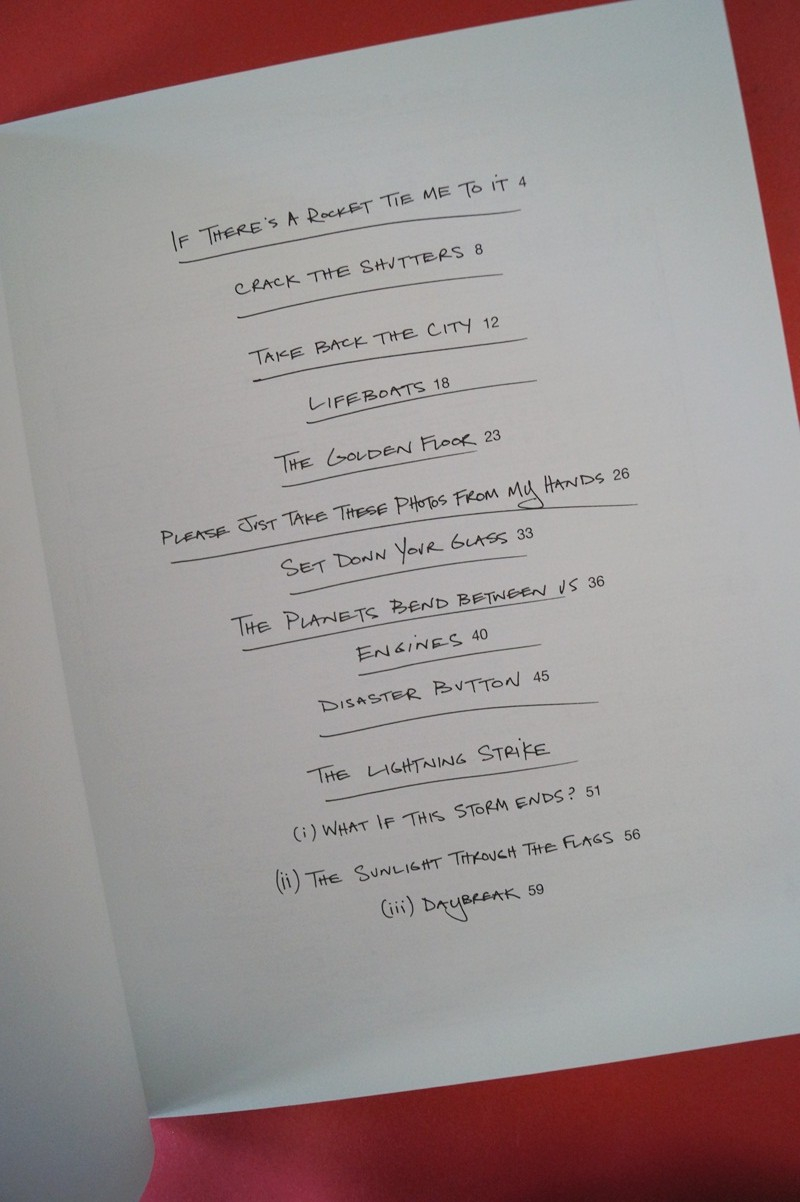 If There's A Rocket Tie Me To It 4
Crack The Shutters 8
Take Back The City 12
Lifeboats 18
The Golden Floor 23
Please Just Take These Photos From My Hands 26
Set Down Your Glass 33
The Planets Bend Between Us 36
Engines 40
Disaster Button 45
The Lightning Strike
(i) What If This Storm Ends? 51
(ii) The Sunlight Through The Flags 56
(iii) Daybreak 59